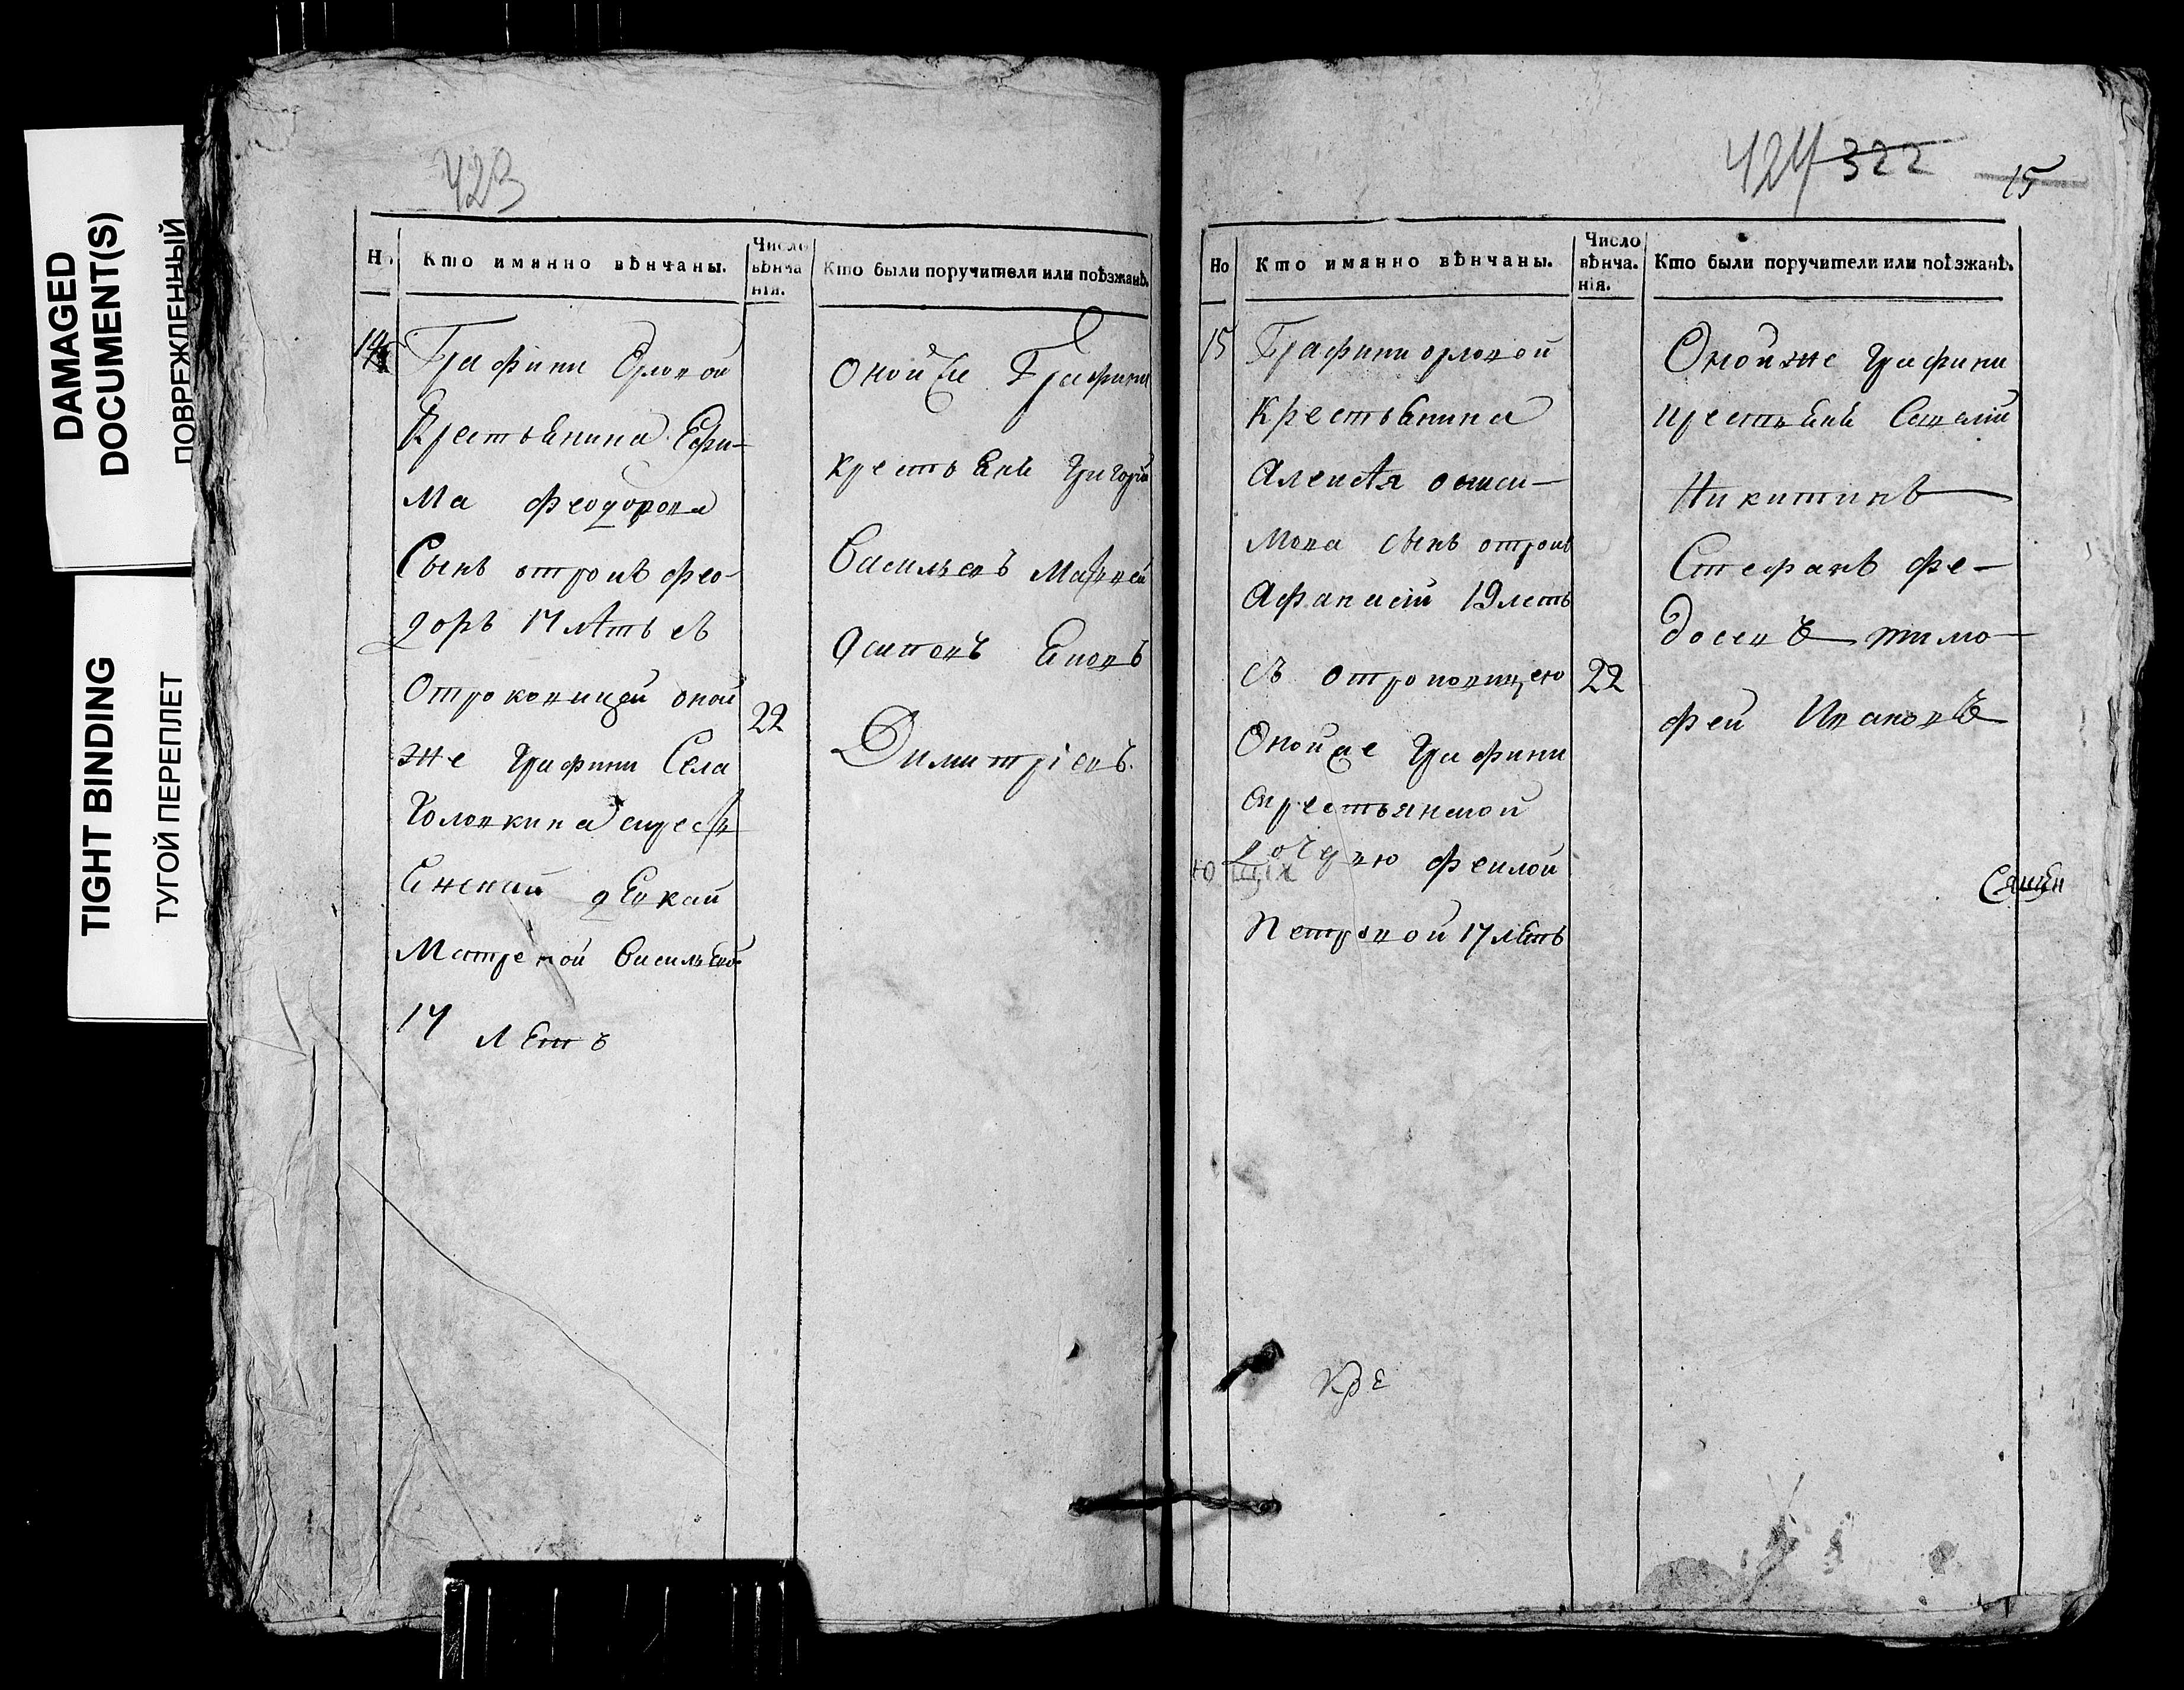 DAMAGED
DOCUMENT(S)
ПОВРЕЖДЕННЫЙ
TIGHT BINDING
ТУГОЙ ПЕРЕПЛЕТ
423
Но
Кто имянно вѣнчаны.
Число
вѣнча
нія.
Кто были поручители или поѣзжанѣ.
14
Графини Орловой
Крестьянина Ефи-
ма Феодорова
Сынъ отрокъ Фео-
доръ 17 лѣтъ съ
Отроковицей оной
22
же Графини Села
дѣвкай
Матреной Васильев
17 лѣтъ
Оной же Графини
крестьяне Григорій
Васильевъ
Димитріевъ.
424 322 15
Но
Кто имянно вѣнчаны.
Число
вѣнча.
нія.
Кто были поручители или поѣзжанѣ.
15
Графини орловой
Крестьянина
Алексѣя
мова сынъ отрокъ
Афанасій 19 летъ
съ отроковицею
22
Оной же Графини
Крестьянской
дочерью Феклой
Петровой 17 лѣтъ
Оной же Графини
крестьяне Савелій
Никитинъ
Стефанъ Фе-
досеевъ тимо-
фей Ивановъ
Кре